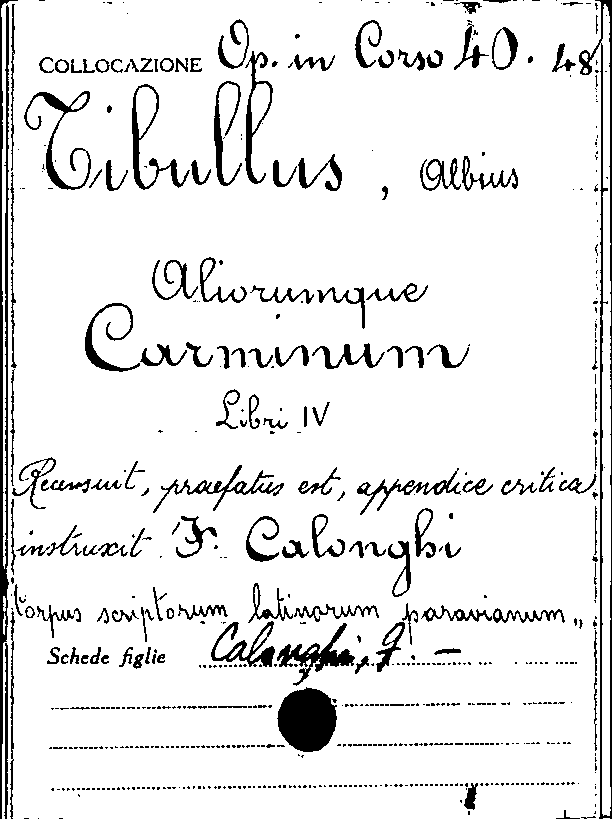 COLLOCAZIONE Op. in Corso 40. 48
Tibullus, Albius
Aliorumque
Carminum
Libri IV
Recensuit, praefatus est, appendice critica
instruxit F. Calonghi
Corpus scriptorum latinorum paravianum„
Schede figlie Calonghi, F. —